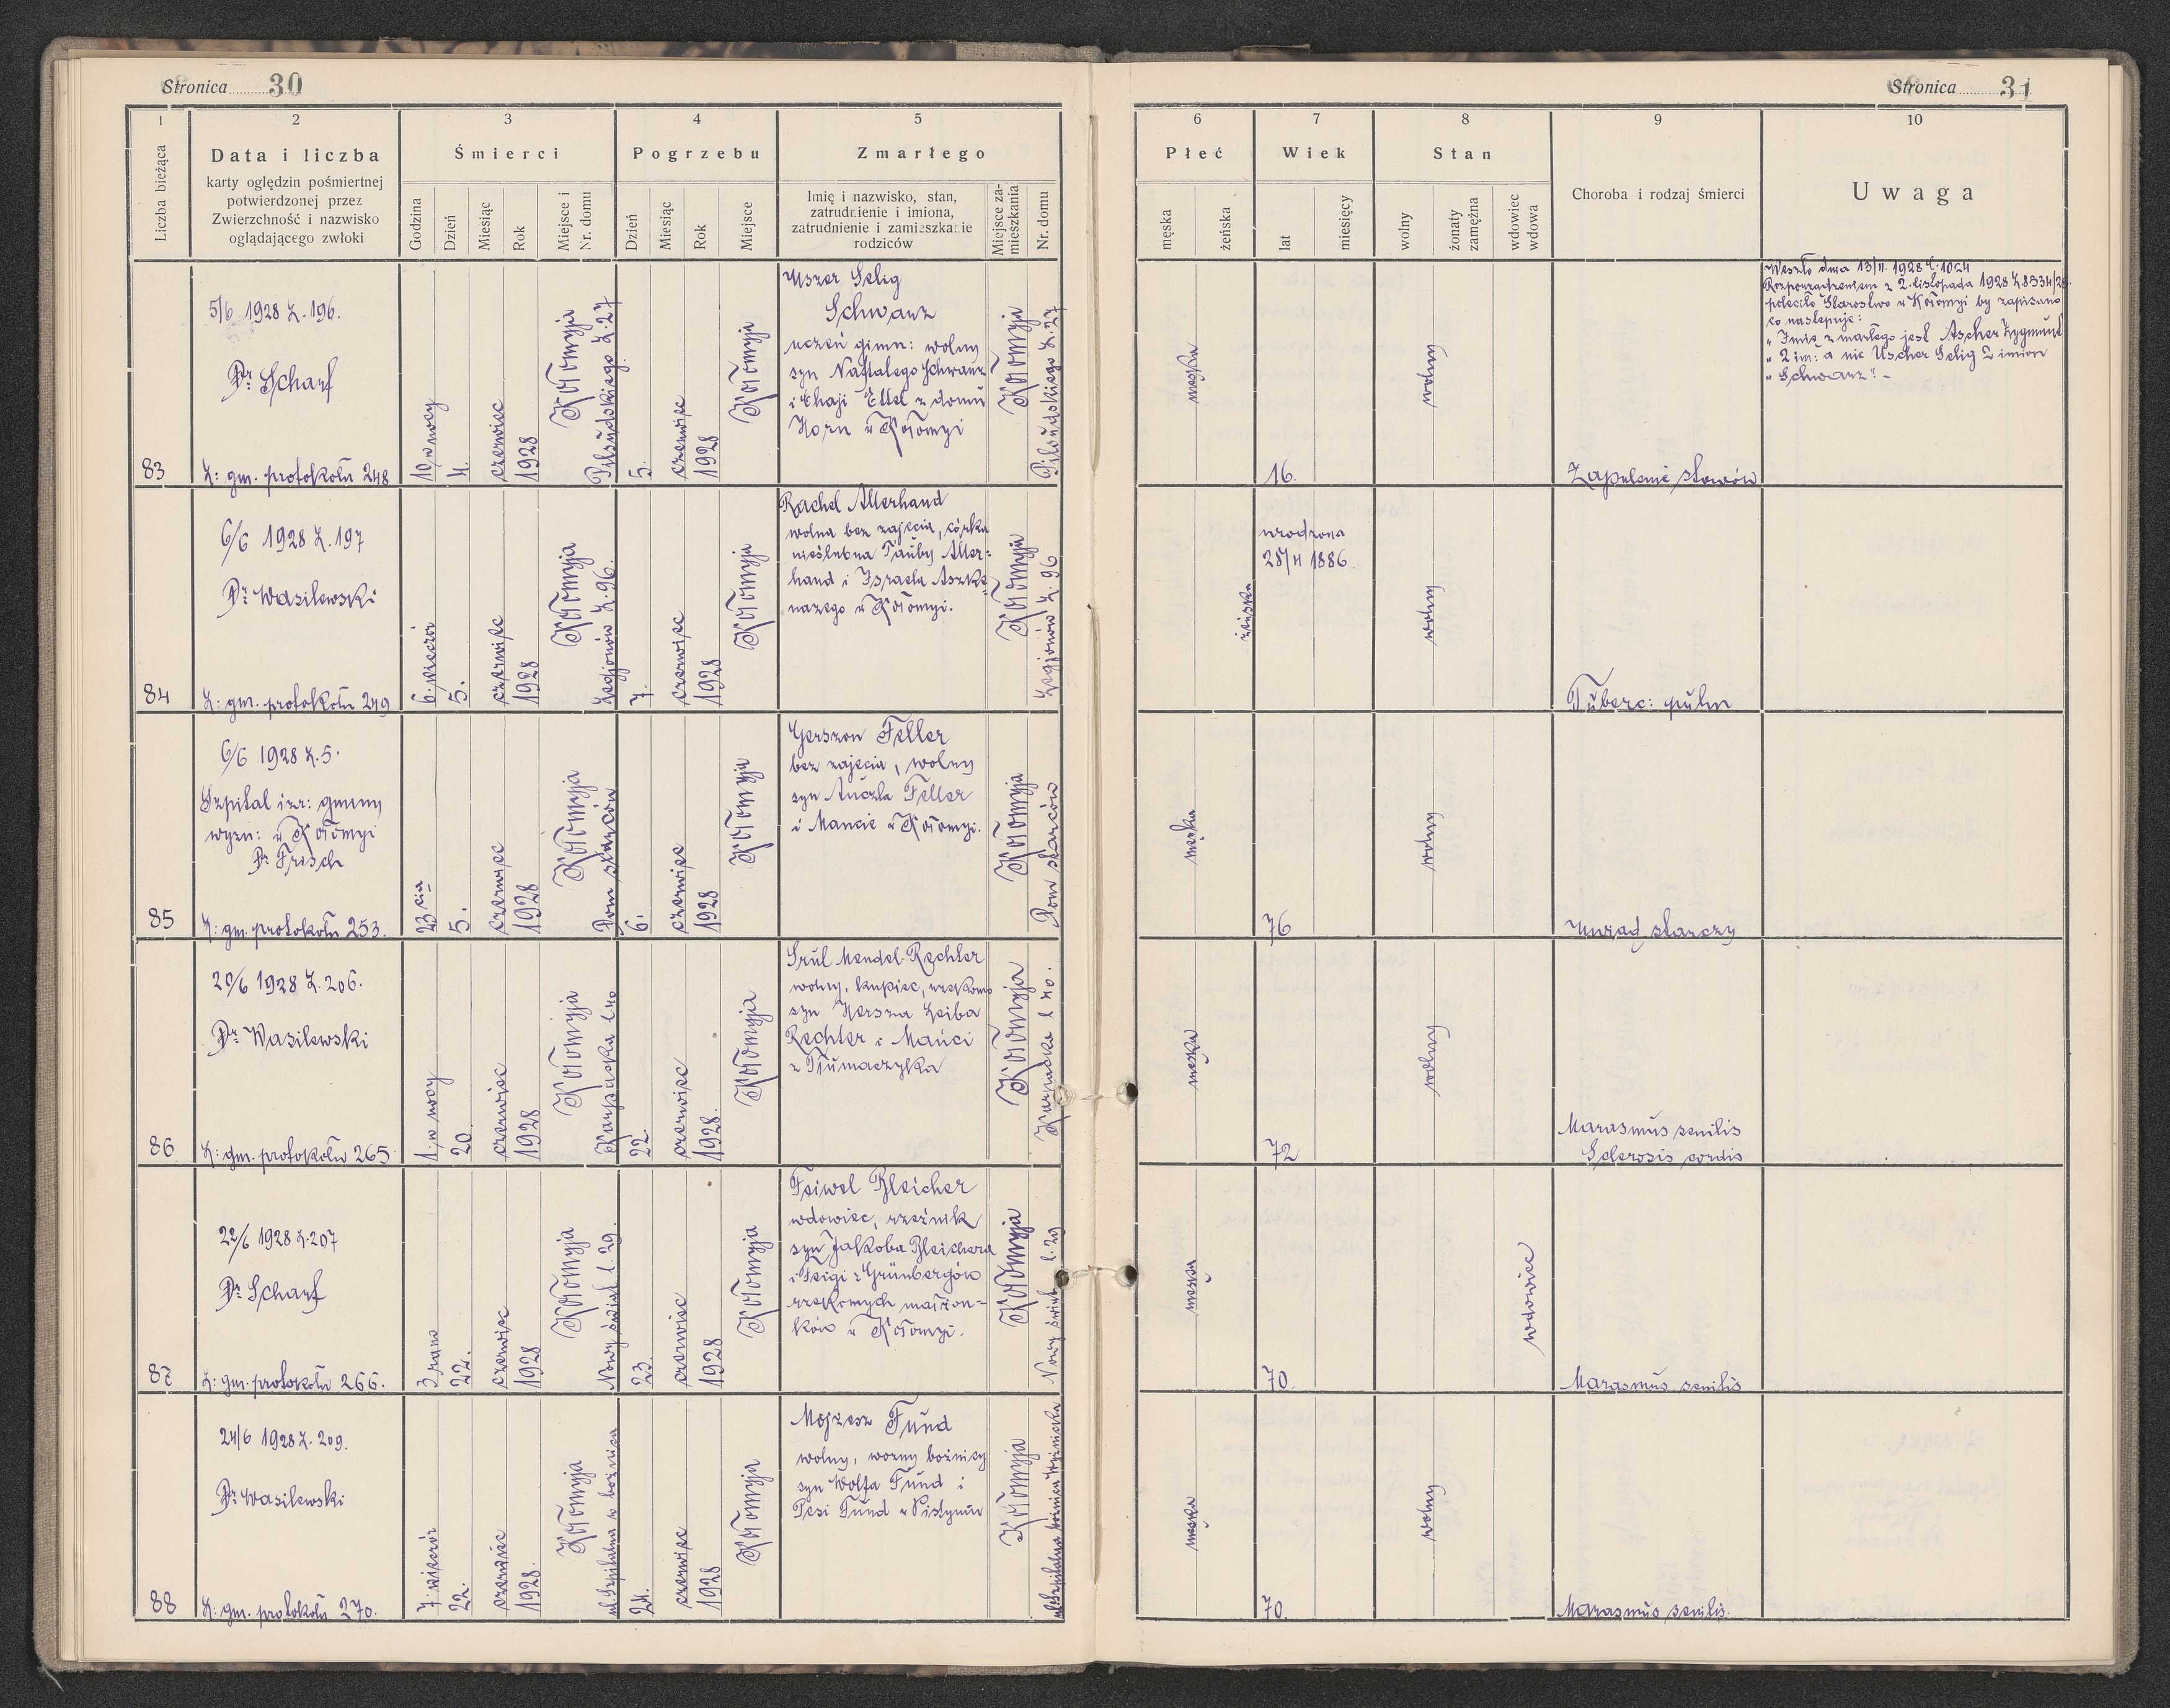 Stronica 30
1
2
3
4
5
Liczba bieżąca
Data i liczba
karty oględzin pośmiertnej
potwierdzonej przez
Zwierzchność i nazwisko
oglądającego zwłoki
Śmierci
Godzina
Dzień
Miesiąc
Rok
Miejsce i
Nr. domu
Pogrzebu
Dzień
Miesiąc
Rok
Miejsce
Zmarłego
Imię i nazwisko, stan,
zatrudnienie i imiona,
zatrudnienie i zamieszkanie
rodziców
Miejsce za-
mieszkania
Nr. domu
83
5/6 1928 L. 196.
Dr Scharf
L: gm. protokołu 248
10 w nocy
4.
czerwiec
1928
Kołomyja
Piłsudskiego L. 27
5.
czerwiec
1928
Kołomyja
Uszer Selig
Schwarz
uczeń gimn: wolny
syn Naftalego Schwarz
i Chaji Ettel z domu
Horn w Kołomyi
Kołomyja
Piłsudskiego L. 27
84
6/6 1928 L. 197
Dr Wasilewski
L: gm. protokołu 249
6. wieczór
5.
czerwiec
1928
Kołomyja
Legjonów L. 96.
7.
czerwiec
1928
Kołomyja
Rachel Allerhand
wolna bez zajęcia, córka
nieślubna Tauby Aller-
hand i Israela Aszke-
nazego w Kołomyi.
Kołomyja
Legjonów L. 96
85
6/6 1928 L. 5.
Szpital izr: gminy
wyzn: w Kołomyi
Dr Frisch
L: gm. protokołu 253.
23 cia
5.
czerwiec
1928
Kołomyja
Dom starców
6.
czerwiec
1928
Kołomyja
Gerszon Feller
bez zajęcia, wolny
syn Anczla Feller
i Mancie w Kołomyi.
Kołomyja
Dom starców
86
20/6 1928 L. 206.
Dr Wasilewski
L: gm. protokołu 265
1. w nocy
20.
czerwiec
1928
Kołomyja
Karpacka l 40
22.
czerwiec
1928.
Kołomyja
Srul Mendel Rechter
wolny, kupiec, rzekomo
syn Hersza Leiba
Rechter i Mańci
z Tłumaczyka
Kołomyja
Karpacka l 40.
87
22/6 1928 L. 207
Dr Scharf
L: gm. protokołu 266.
3 rano
22.
czerwiec
1928
Kołomyja
Nowy świat l. 29.
23.
czerwiec
1928
Kołomyja
Feiwel Bleicher
wdowiec, rzeźnik
syn Jakoba Bleichera
i Feigi z Grünbergów
rzekomych małżon-
ków w Kołomyi.
Kołomyja
Nowy świat l. 29
88
24/6 1928 L. 209.
Dr Wasilewski
L: gm. protokołu 270.
7 wieczór
22.
czerwiec
1928.
Kołomyja
ul. Szpitalna w bożnica
24.
czerwiec
1928
Kołomyja
Mojżesz Fund
wolny, woźny bożnicy
syn Wolfa Fund i
Pesi Fund w Pistyniu
Kołomyja
ul. Szpitalna bożnica
Stronica 31
6
7
8
9
10
Płeć
męska
żeńska
Wiek
lat
miesięcy
Stan
wolny
żonaty
zamężna
wdowiec
wdowa
Choroba i rodzaj śmierci
Uwaga
męska
16.
wolny
Zapalenie stawów
Weszło dnia 13/11. 1928 l. 1024
Rozporządzeniem z 2. listopada 1928 L 8534/28
poleciło Starostwo w Kołomyi by zapisano
co następuje:
" Imię zmarłego jest Ascher Zygmunt
" 2 im: a nie Uscher Selig 2 imion
" Schwarz". -
żeńska
urodzona
25/11 1886.
wolny
Tuberc: pulm
męska
76
wolny
Uwiąd starczy
męska
72
wolny
Marasmus senilis
Sclerosis cordis
męska
70.
wdowiec
Marasmus senilis
męska
70.
wolny
Marasmus senilis.